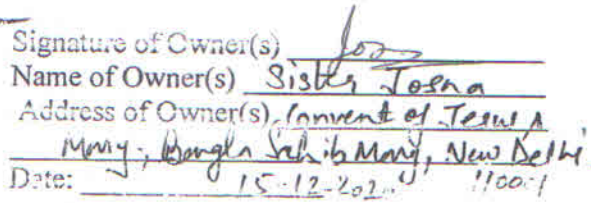 Signature of Owner(s) Jos
Name of Owner(s) Sister Josna
Address of Owner(s) Convent of Jesus &
Mary, Bangla Sahib Marg, New Delhi
Date: 15-12-202 110001